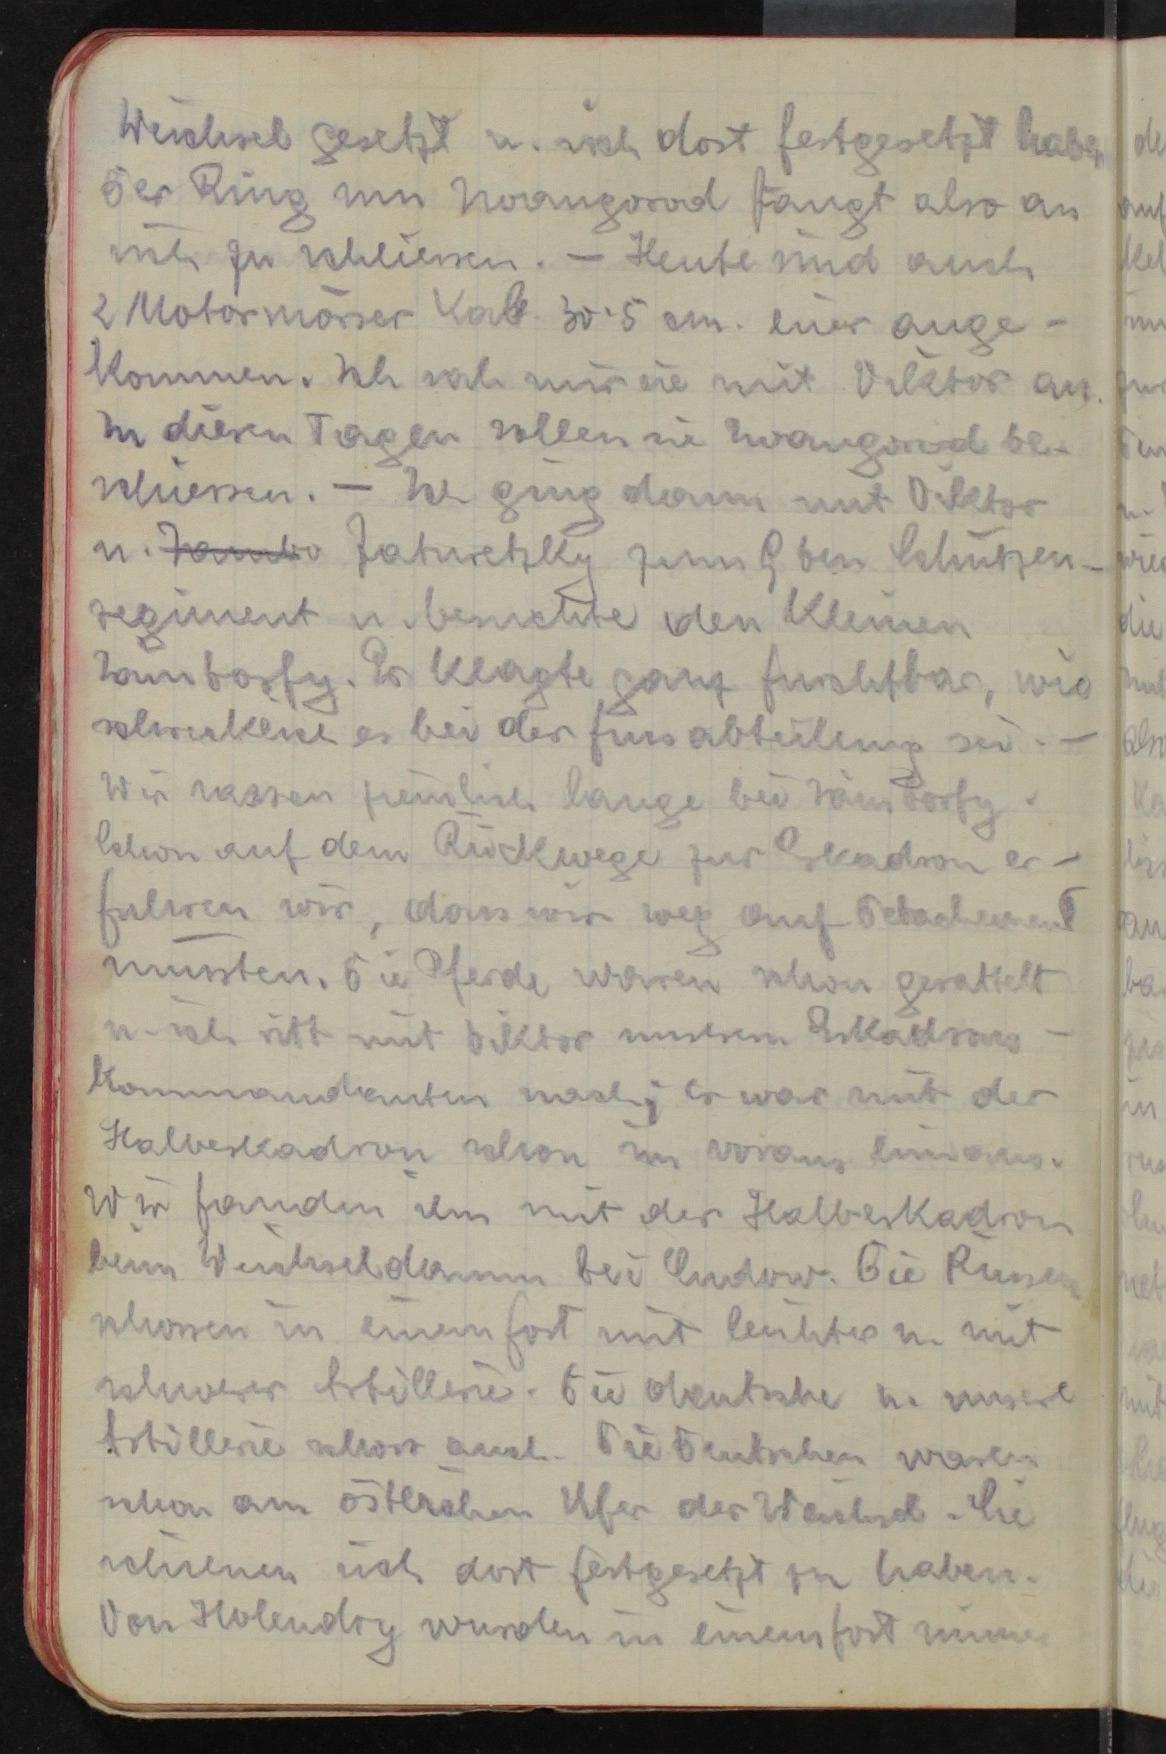 Weichsel gesetzt u. sich dort festgesetzt haben
Der Ring um Iwangorod fängt also an
sich zu schliessen. – Heute sind auch
2 Motormörser Kal. 30·5 cm. hier ange-
kommen. Ich sah mir sie mit Viktor an.
In diesen Tagen sollen sie Iwangorod be-
schiessen. – Ich ging dann mit Viktor
u. Zaturetzky zum 9ten Schützen-
regiment u. besuchte den Kleinen
Sándorfy. Er klagte ganz furchtbar, wie
schrecklich es bei der Fussabteilung sei. –
Wir sassen ziemlich lange bei Sándorfy.
Schon auf dem Rückwege zur Eskadron er-
fuhren wir, dass wir weg auf Detachement
mussten. Die Pferde waren schon gesattelt
u. ich ritt mit Viktor unserem Eskadrons-
kommandanten nach; Er war mit der
Halbeskadron schon im voraus hinaus.
Wir fanden ihn mit der Halbeskadron
beim Weichseldamm bei. Die Russen
schossen in einem fort mit leichter u. mit
schwerer Artillerie. Die deutsche u. unsere
Artillerie schoss auch. Die Deutschen waren
schon am östlichen Ufer der Weichsel. Sie
schienen sich dort festgesetzt zu haben.
Von Holendry wurden in einem fort immer